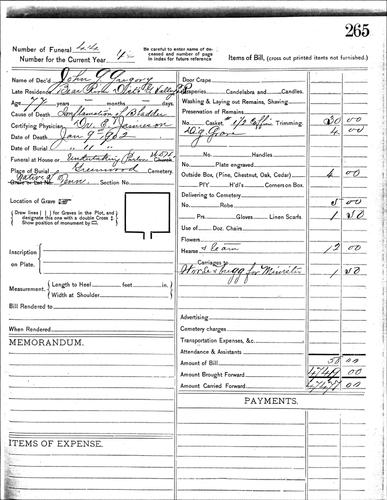 265
Number of Funeral 44
Number for the Current Year 4
Be carefull to enter name of deceased and number of page in index for future reference.
Items of Bill, (cross out printed items not furnished.)
Name of Dec'd John G. Gregory
Late Residence Bear River
Age 77 years – months – days
Cause of Death Inflamation of Bladder
Certifying Physician Dr. E. Jameson
Date of Death Jan 9th 1902
Date of Burial " 11 "
Funeral at House or Undertaking Parlor
Place of Burial Greenwood Cemetery.
Native of Tenn.
Grave or Lot No. Section No.
Location of Grave
Draw lines [ ] for Graves in the Plot, and designate this one with a double Cross
Show position of monument by
Inscription on Plate.
Measurement. Length to Heel feet in.
Width at Shoulder
Bill Rendered to
When Rendered
MEMORANDUM.
ITEMS OF EXPENSE.
Door Crape
Draperies, Candelabra and Candles.
Washing & Laying out Remains, Shaving
Preservation of Remains
No. Casket, Coffin Trimming. 30 00
Dig Grave 4 00
No. Handles
Plate engraved
Outside Box, (Pine, Chestnut, Oak, Cedar) 4 00
PIY H'd'l's Corners on Box.
Delivering to Cemetery
No. Robe 5 00
Prs. Gloves Linen Scarfs. 1 50
Use of Doz. Chairs
Flowers
Hearse & team 12 00
Carriages to
Horse & bugg for Minister 1 50
Advertising
Cemetery charges
Transportation Expenses, &c.
Attendance & Assistants
Amount of Bill 58 00
Amount Brought Forward
Amount Carried Forward
PAYMENTS.